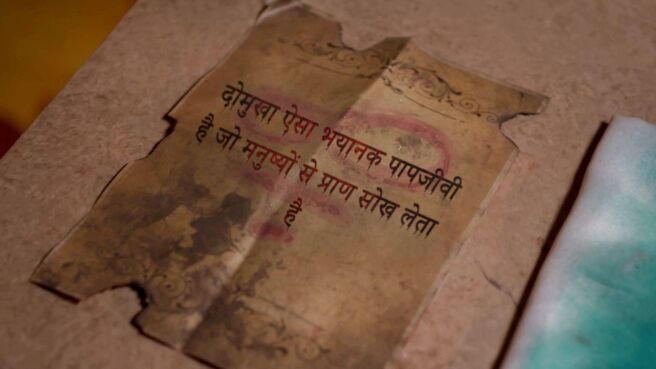 दोमुखा ऐसा भयानक पापजीवी
है जो मनुष्यों से प्राण सोख लेता
है